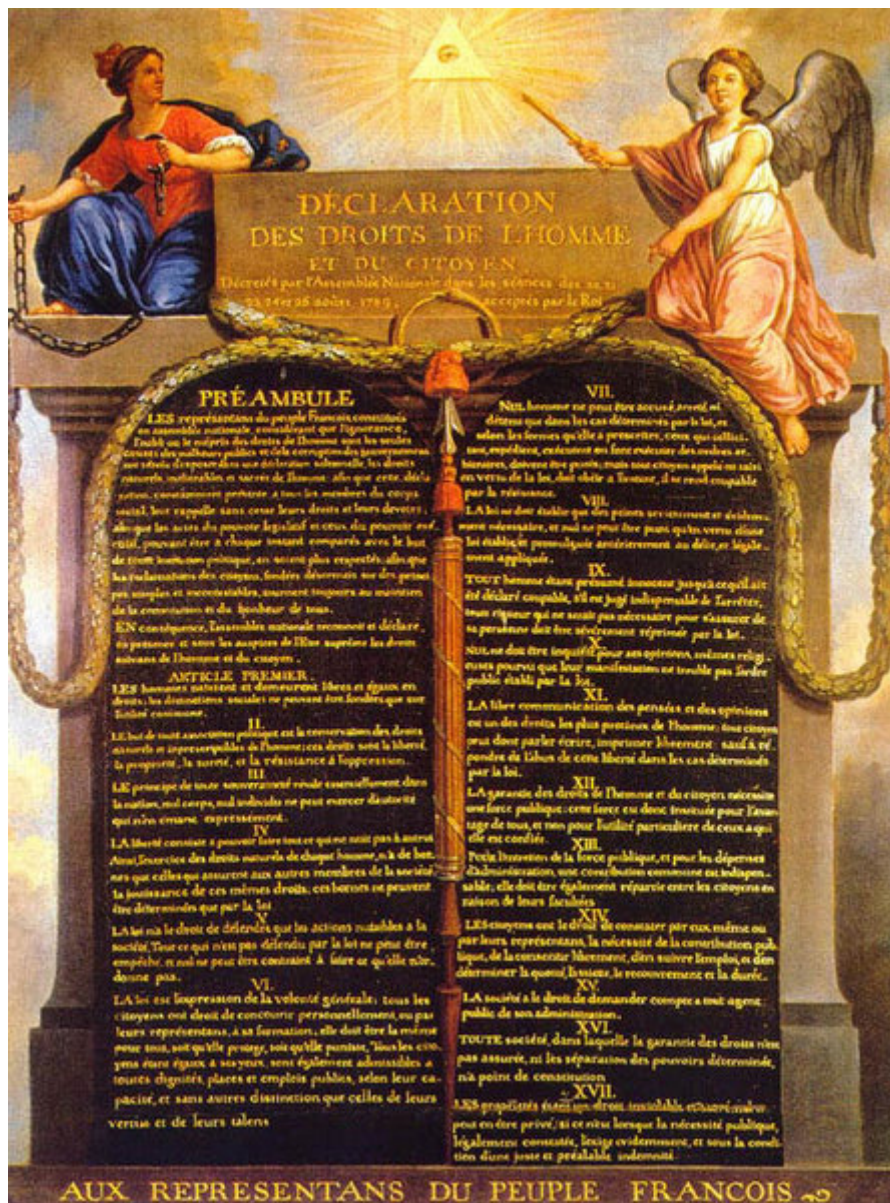 DÉCLARATION
DES DROITS DE L'HOMME
ET DU CITOYEN
Décretés par l'Assemblée Nationale dans les séances des 20. 21
23. 24 et 26 août, 1789, acceptés par le Roi
PRÉAMBULE
LES représentans du peuple François, constitués
en assemblée nationale, considérant que l'ignorance,
l'oubli ou le mépris des droits de l'homme sont les seules
causes des malheurs publics et de la corruption des gouvernemens
ont résolu d'exposer dans une déclaration solemnelle, les droits
naturels, inaliénables et sacrés de l'homme; afin que cette décla-
ration, constamment présente a tous les membres du corps
social, leur rappelle sans cesse leurs droits et leurs devoirs;
afin que les actes du pouvoir législatif et ceux du pouvoir exé-
cutif, pouvant être a chaque instant comparés avec le but
de toute institution politique, en soient plus respectés; afin que
les réclamations des citoyens, fondées désormais sur des princi-
pes simples et incontestables, tournent toujours au maintien
de la constitution et du bonheur de tous.
EN conséquence, l'assemblée nationale reconnoit et déclare,
en présence et sous les auspices de l'Etre suprême les droits
suivans de l'homme et du citoyen.
ARTICLE PREMIER.
LES hommes naissent et demeurent libres et égaux en
droits, les distinctions sociales ne peuvent être fondées que sur
l'utilité commune.
II.
LE but de toute association politique est la conservation des droits
naturels et imprescriptibles de l'homme; ces droits sont la liberté,
la propriété, la sureté, et la résistance à l'oppression.
III.
LE principe de toute souveraineté réside essentiellement dans
la nation, nul corps, nul individu ne peut exercer d'autorité
qui n'en emane expressément.
IV.
LA liberté consiste a pouvoir faire tout ce qui ne nuit pas à autrui
Ainsi, l'exercice des droits naturels de chaque homme, n'a de bor-
nes que celles qui assurent aux autres membres de la société
la jouissance de ces mêmes droits; ces bornes ne peuvent
être déterminées que par la loi
V.
LA loi n'a le droit de défendre que les actions nuisibles à la
société, Tout ce qui n'est pas défendu par la loi ne peut être
empêché, et nul ne peut être contraint à faire ce qu'elle n'or-
donne pas.
VI.
LA loi est l'expression de la volonté générale; tous les
citoyens ont droit de concourir personnellement, ou par
leurs représentans, à sa formation; elle doit être la même
pour tous, soit qu'elle protege, soit qu'elle punisse, Tous les cito-
yens étant égaux à ses yeux, sont également admissibles a
toutes dignités, places et emplois publics, selon leur ca-
pacité, et sans autres distinction que celles de leurs
vertus et de leurs talens
VII.
NUL homme ne peut être accusé, arreté, ni
détenu que dans les cas déterminés par la loi, et
selon les formes qu'elle a prescrittes, ceux qui sollici-
tent, expédient, exécutent ou font exécuter des ordres ar-
bitraires, doivent être punis; mais tout citoyen appelé ou saisi
en vertu de la loi, doit obéir a l'instant, il se rend coupable
par la résistance.
VIII.
LA loi ne doit établir que des peines strictement et évidem-
ment nécessaire, et nul ne peut être puni qu'en vertu d'une
loi établie et promulguée antérierement au délit, et légale-
ment appliquée.
IX.
TOUT homme étant présumé innocent jusqu'à ce qu'il ait
été déclaré coupable, s'il est jugé indispensable de l'arrêter,
toute rigueur qui ne serait pas nécessaire pour s'assurer de
sa personne doit être sévèrement réprimée par la loi.
X.
NUL ne doit être inquiété pour ses opinions, mêmes religi-
euses pourvu que leur manifestation ne trouble pas l'ordre
public établi par la loi.
XI.
LA libre communication des pensées et des opinions
est un des droits les plus precieux de l'homme; tout citoyen
peut donc parler écrire, imprimer librement; sauf à ré-
pondre de l'abus de cette liberté dans les cas déterminés
par la loi.
XII.
LA garantie des droits de l'homme et du citoyen nécessite
une force publique; cette force est donc instituée pour l'avan-
tage de tous, et non pour l'utilité particuliere de ceux a qui
elle est confiée.
XIII.
POUR l'entretien de la force publique, et pour les dépenses
d'administration, une contribution commune est indispen-
sable; elle doit être également répartie entre les citoyens en
raison de leurs facultées
XIV.
LES citoyens ont le droit de constater par eux même ou
par leurs représentans, la nécessité de la contribution pub-
lique, de la consentir librement, d'en suivre l'emploi, et d'en
déterminer la quotité, l'assiette, le recouvrement et la durée.
XV.
LA société a le droit de demander compte a tout agent
public de son administration.
XVI.
TOUTE société, dans laquelle la garantie des droits n'est
pas assurée, ni les séparation des pouvoirs déterminée,
n'a point de constitution
XVII.
LES propriétés étant un droit inviolable et sacré, nul ne
peut en être privé, si ce n'est lorsque la nécessité publique,
légalement constatée, l'exige evidemment, et sous la condi-
tion d'une juste et préalable indemnité.
AUX REPRESENTANS DU PEUPLE FRANCOIS